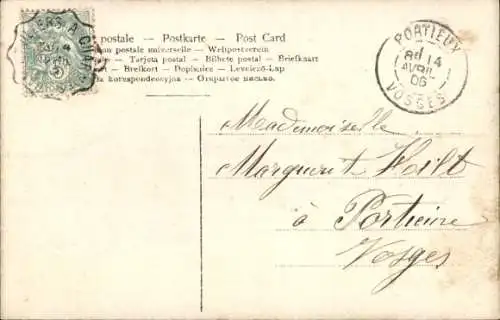 postale – Postkarte – Post Card
on postale universelle – Weltpostverein
Tarjeta postal – Bilhete postal – Briefkaart
Brefkort – Dopisnice – Levelező-Lap
a korespondencyjna – Открытое письмо.
PORTIEUX
8E 14
AVRIL
06
VOSGES
Mademoiselle
Marguerite
à Portieux
Vosges